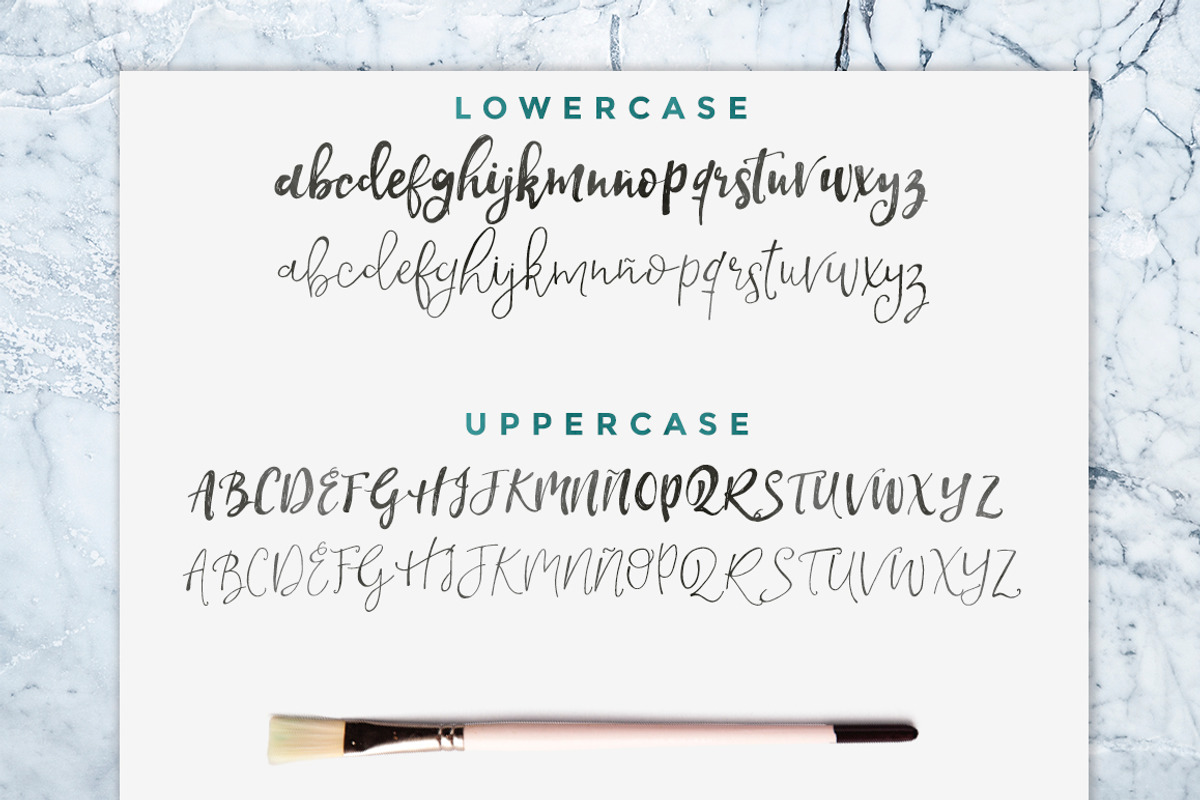 LOWERCASE
abcdefghijkmnñopqrstuvwxyz
abcdefghijkmnñopqrstuvwxyz
UPPERCASE
ABCDEFGHIJKMNÑOPQRSTUVWXYZ
ABCDEFGHIJKMNÑOPQRSTUVWXYZ